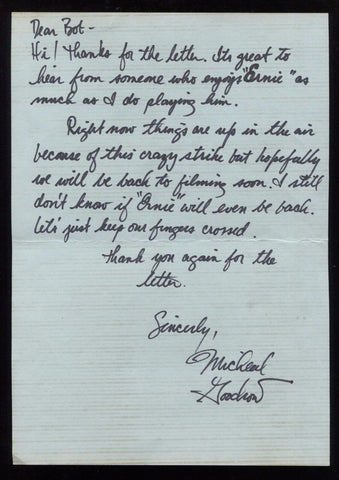 Dear Bob-
Hi! Thanks for the letter. It's great to
hear from someone who enjoys "Ernie" as
much as I do playing him.
Right now things are up in the air
because of this crazy strike but hopefully
we will be back to filming soon. I still
don't know if "Ernie" will even be back.
Let's just keep our fingers crossed.
Thank you again for the
letter.
Sincerly,
Micheal
Goodrow